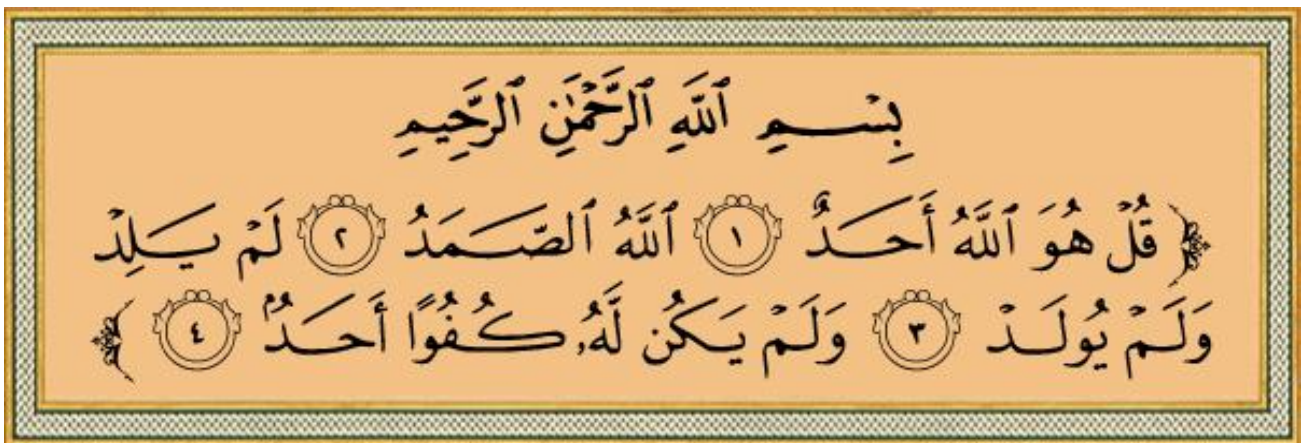 بِسۡمِ ٱللَّهِ ٱلرَّحۡمَٰنِ ٱلرَّحِيمِ
﴿ قُلۡ هُوَ ٱللَّهُ أَحَدٌ ١ ٱللَّهُ ٱلصَّمَدُ ٢ لَمۡ يَلِدۡ
وَلَمۡ يُولَدۡ ٣ وَلَمۡ يَكُن لَّهُۥ كُفُوًا أَحَدُۢ ٤ ﴾